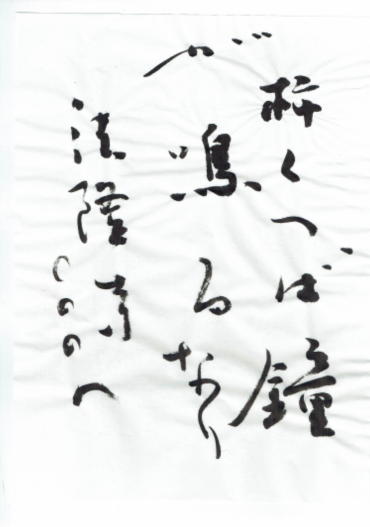 柿くへば鐘
が鳴るなり
法隆寺